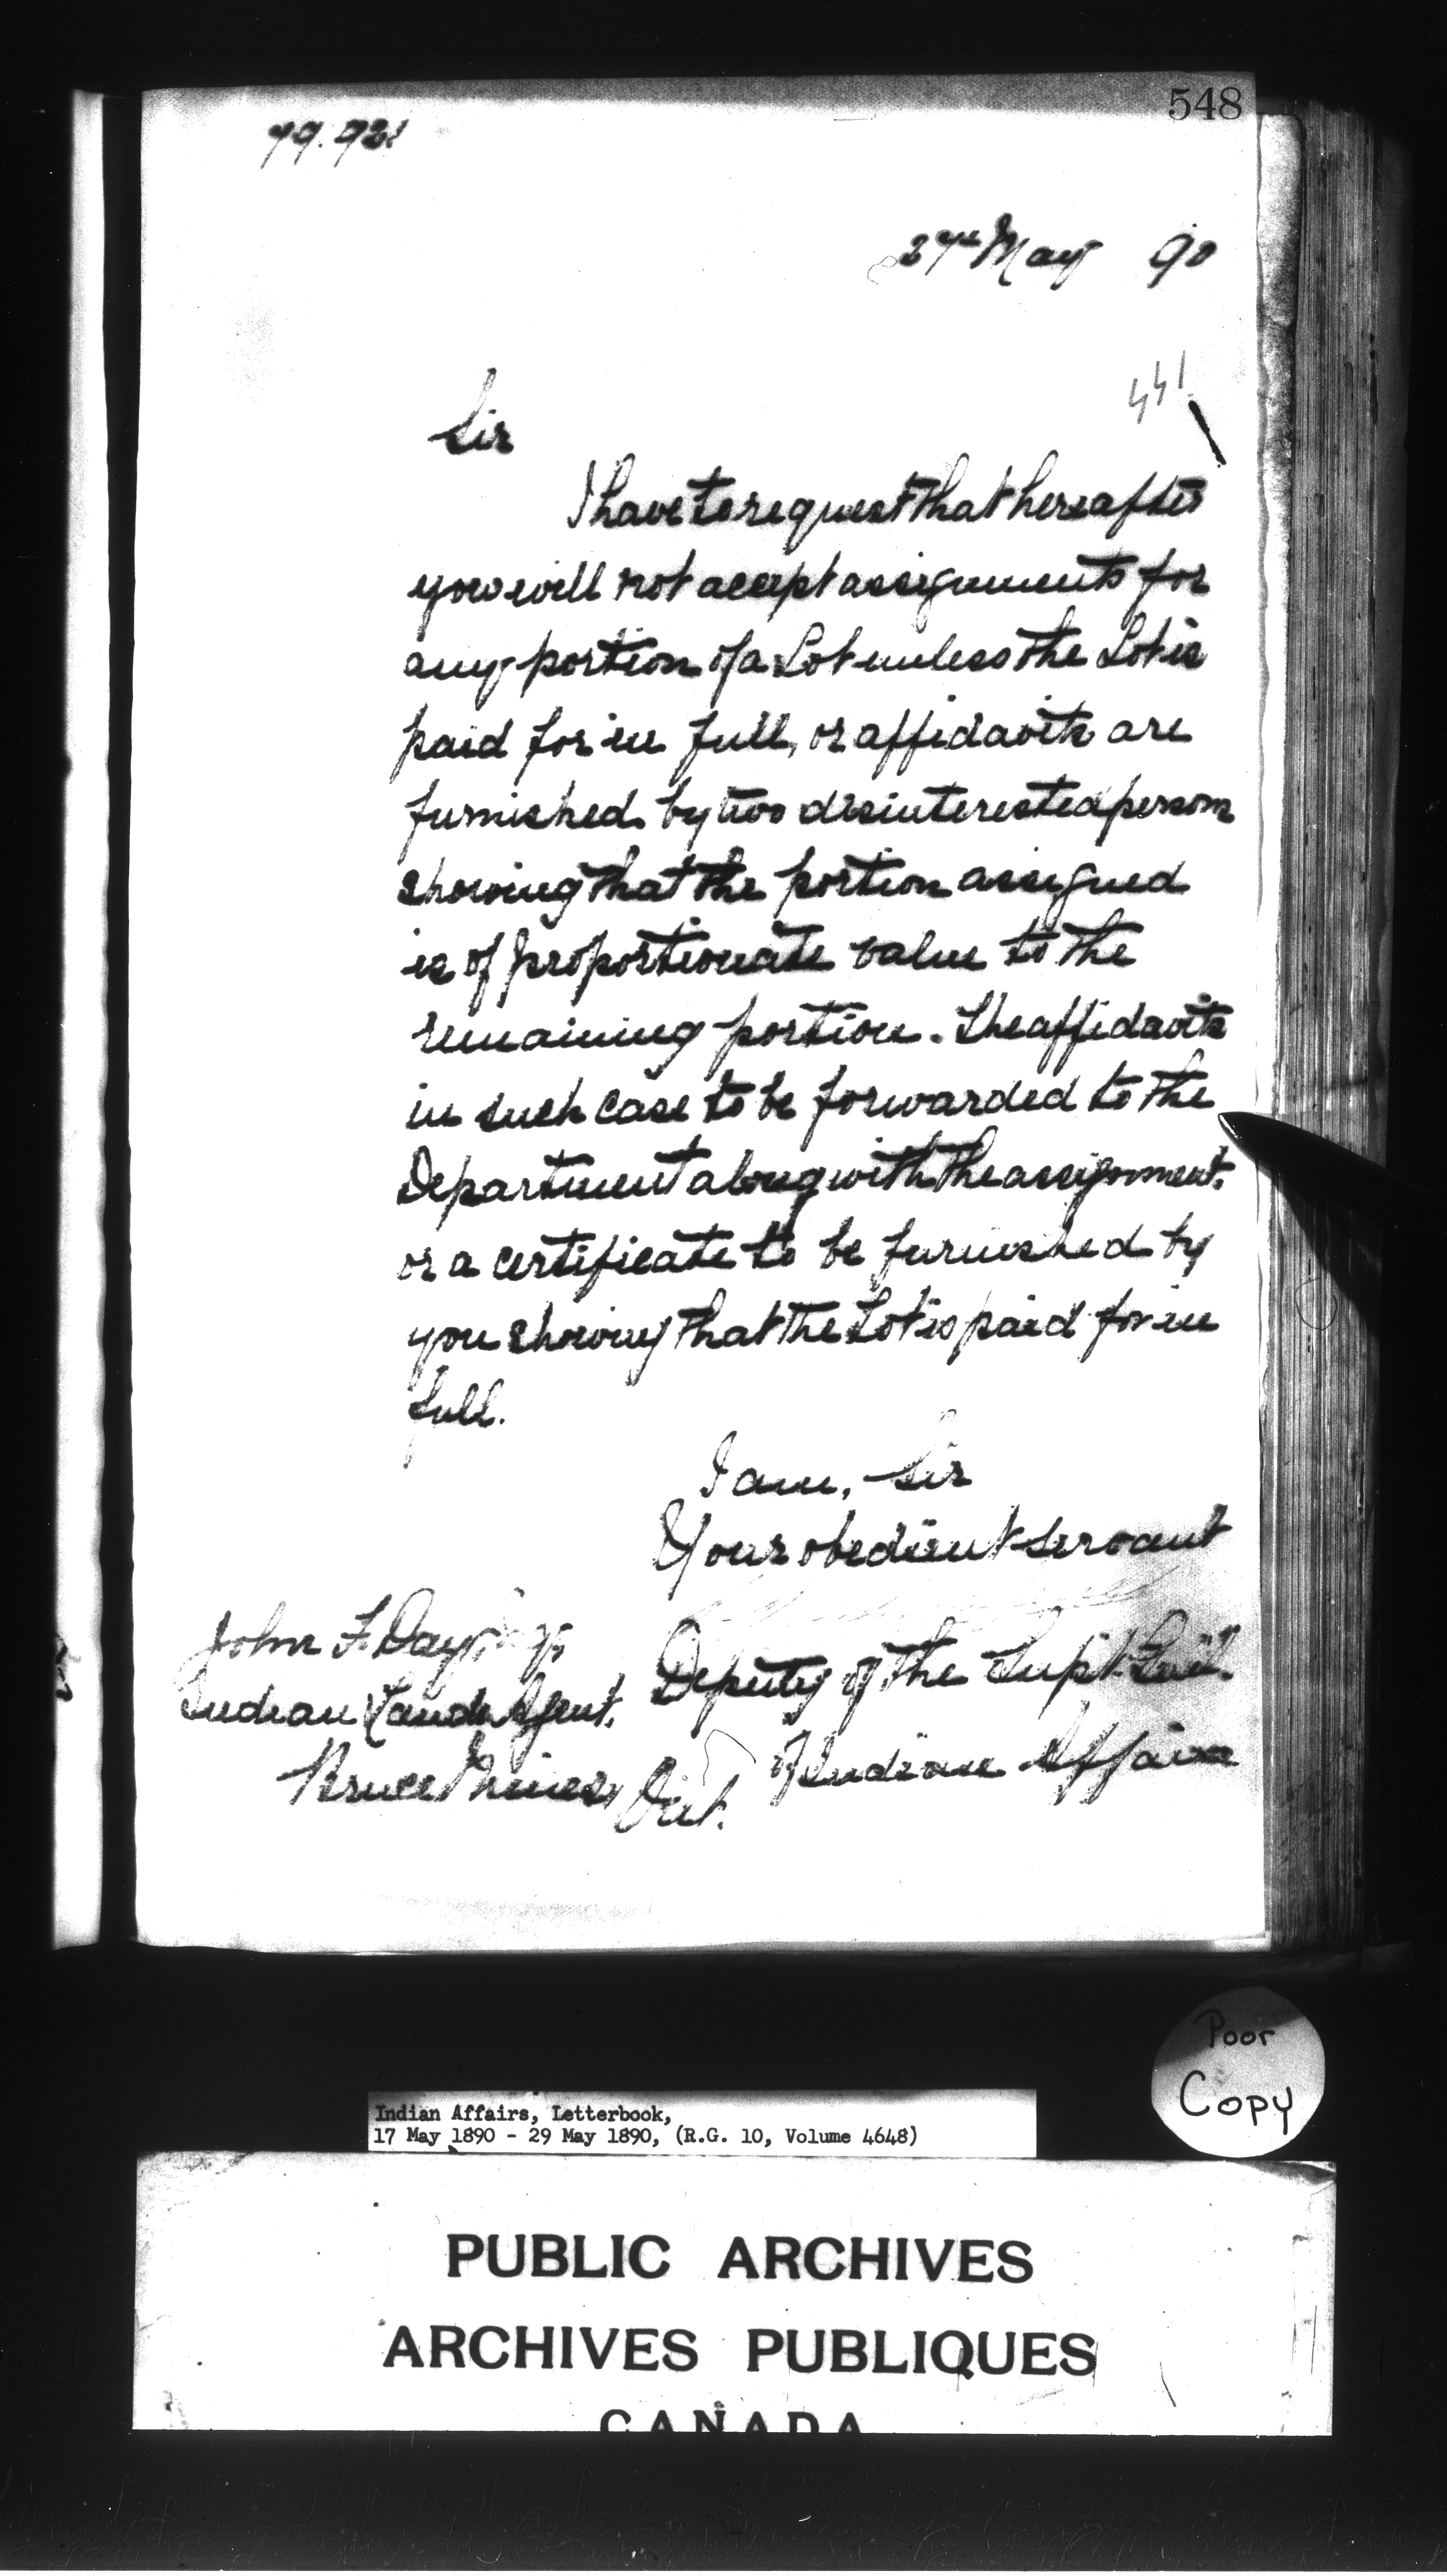 548
79.921
27th May 90
441
Sir
I have to request that hereafter
you will not accept assignments for
any portion of a Lot unless the Lot is
paid for in full, or affidavits are
furnished by two disinterested persons
showing that the portion assigned
is of proportionate value to the
remaining portion. The affidavits
in such case to be forwarded to the
Department along with the assignment,
or a certificate to be furnished by
you showing that the Lot is paid for in
full.
I am, Sir
Your obedient servant
Deputy of the Supt. Genl.
of Indian Affairs
John F. Day,
Indian Lands Agent,
Bruce Mines, Ont.
Poor
Copy
Indian Affairs, Letterbook,
17 May 1890 - 29 May 1890, (R.G. 10, Volume 4648)
PUBLIC ARCHIVES
ARCHIVES PUBLIQUES
CANADA